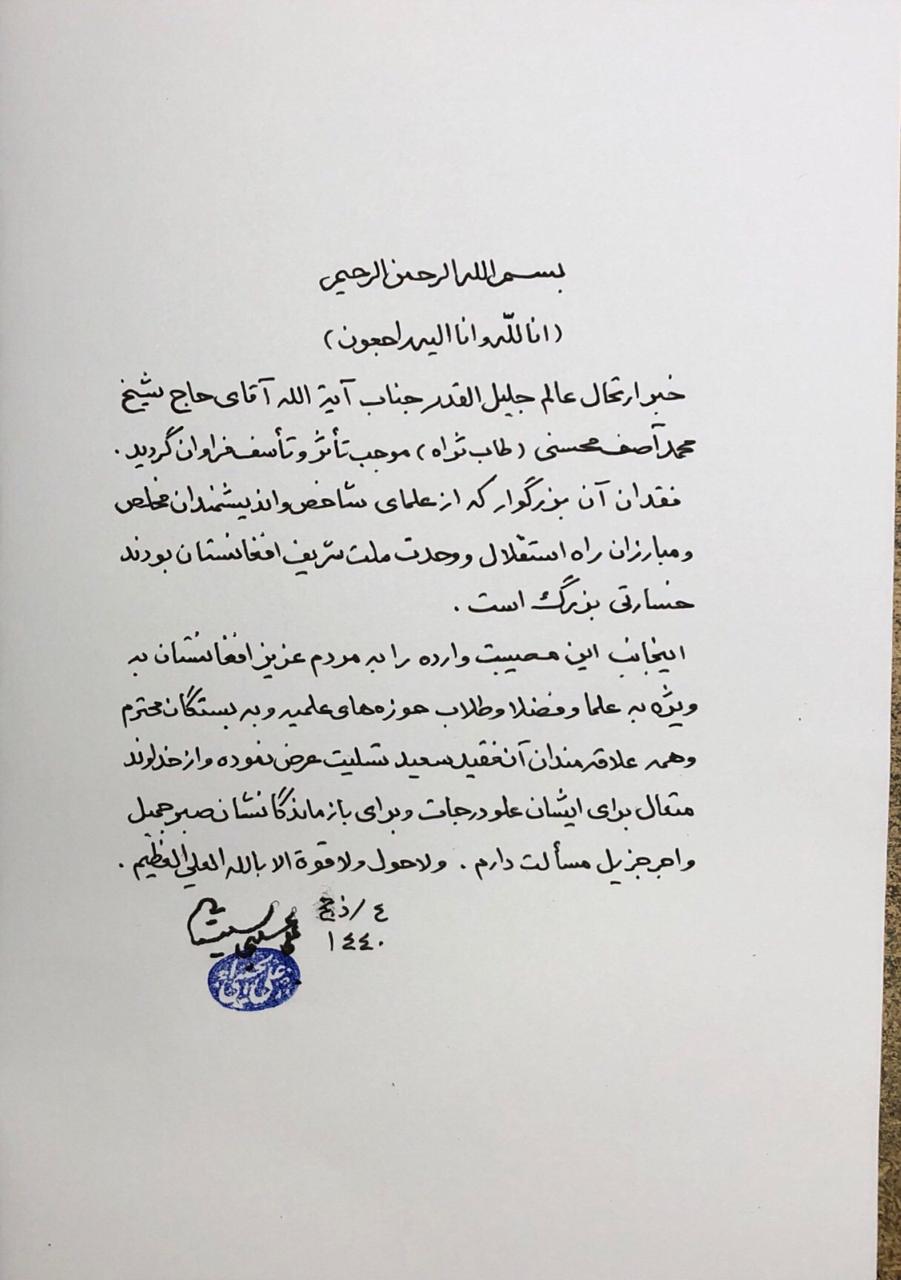 بسم الله الرحمن الرحیم
(انا للّه و انا الیه راجعون)
خبر ارتحال عالم جلیل القدر جناب آیة الله آقای حاج شیخ
محمد آصف محسنی (طاب ثراه) موجب تأثر و تأسف فراوان گردید.
فقدان آن بزرگوار که از علمای شاخص و اندیشمندان مخلص
و مبارزان راه استقلال و وحدت ملت شریف افغانستان بودند
خسارتی بزرگ است.
اینجانب این مصیبت وارده را به مردم عزیز افغانستان به
ویژه به علما و فضلا و طلاب حوزه‌های علمیه و به بستگان محترم
و همه علاقه‌مندان آن فقید سعید تسلیت عرض نموده و از خداوند
متعال برای ایشان علو درجات و برای بازماندگانشان صبر جمیل
و اجر جزیل مسألت دارم. ولا حول ولا قوة الا بالله العلي العظیم.
٤ /ذ ح
١٤٤٠